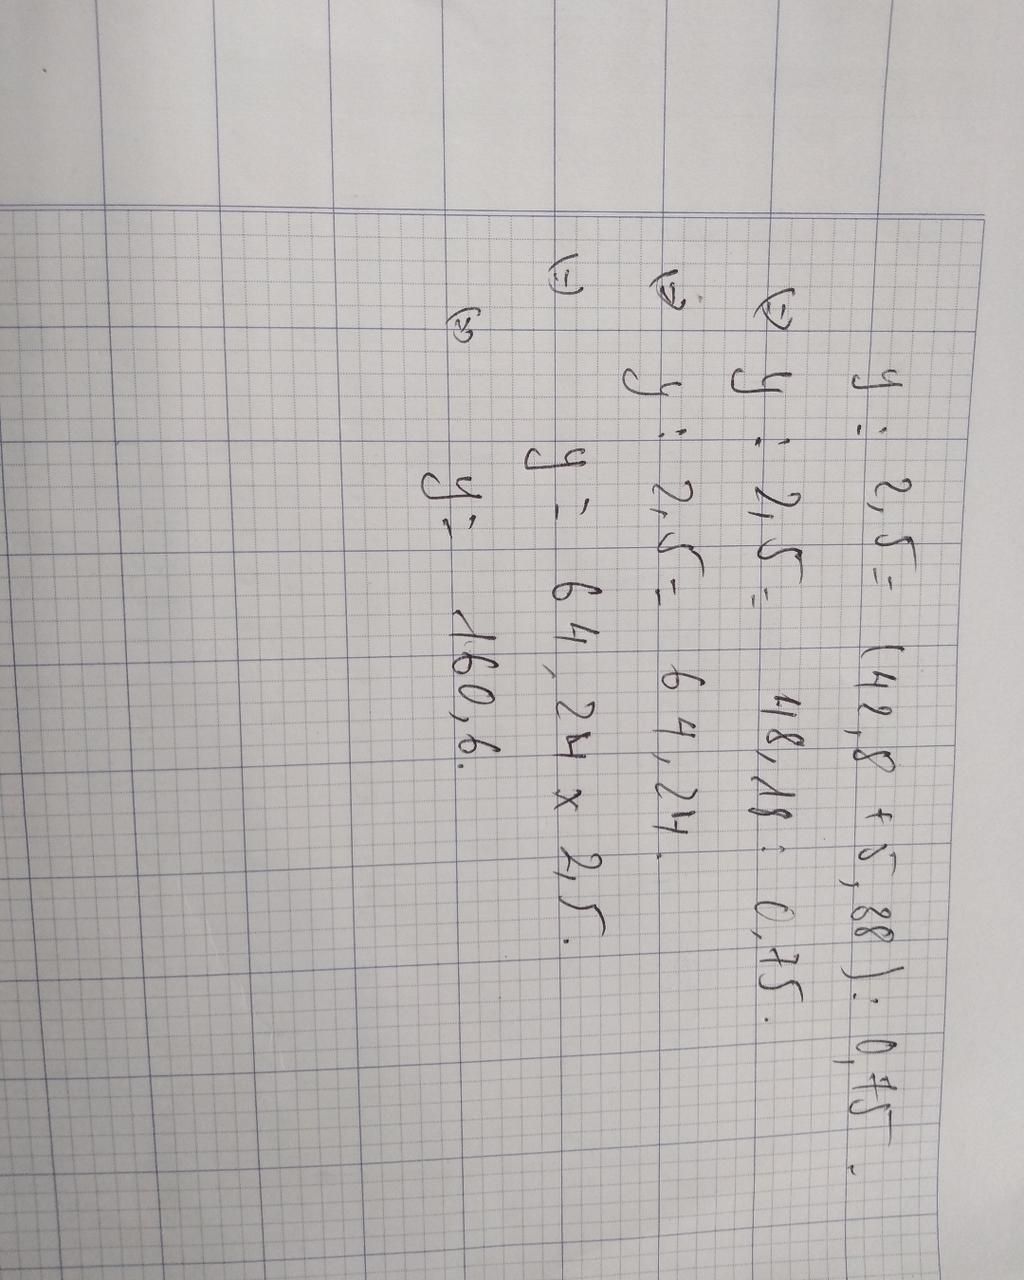 y : 2,5 = (42,8 + 5,88) : 0,75.
(=) y : 2,5 = 48,18 : 0,75.
(=) y : 2,5 = 64,24.
(=) y = 64,24 x 2,5.
(=) y = 160,6.